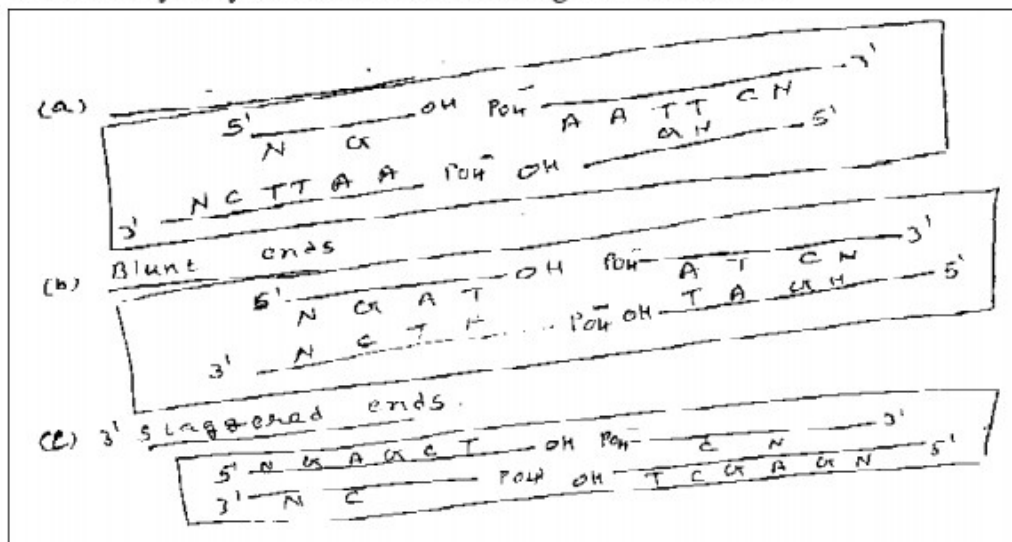 (a)
5' OH PO4⁻ 3'
N G A A T T C N
N C T T A A PO4⁻ OH G N 5'
3'
Blunt ends
(b) 5' OH PO4⁻ A T C N 3'
N G A T
3' N C T PO4⁻ OH T A G N 5'
(c) 3' Staggered ends.
5' N G A G C T OH PO4⁻ C N 3'
3' N C PO4 OH T C G A G N 5'